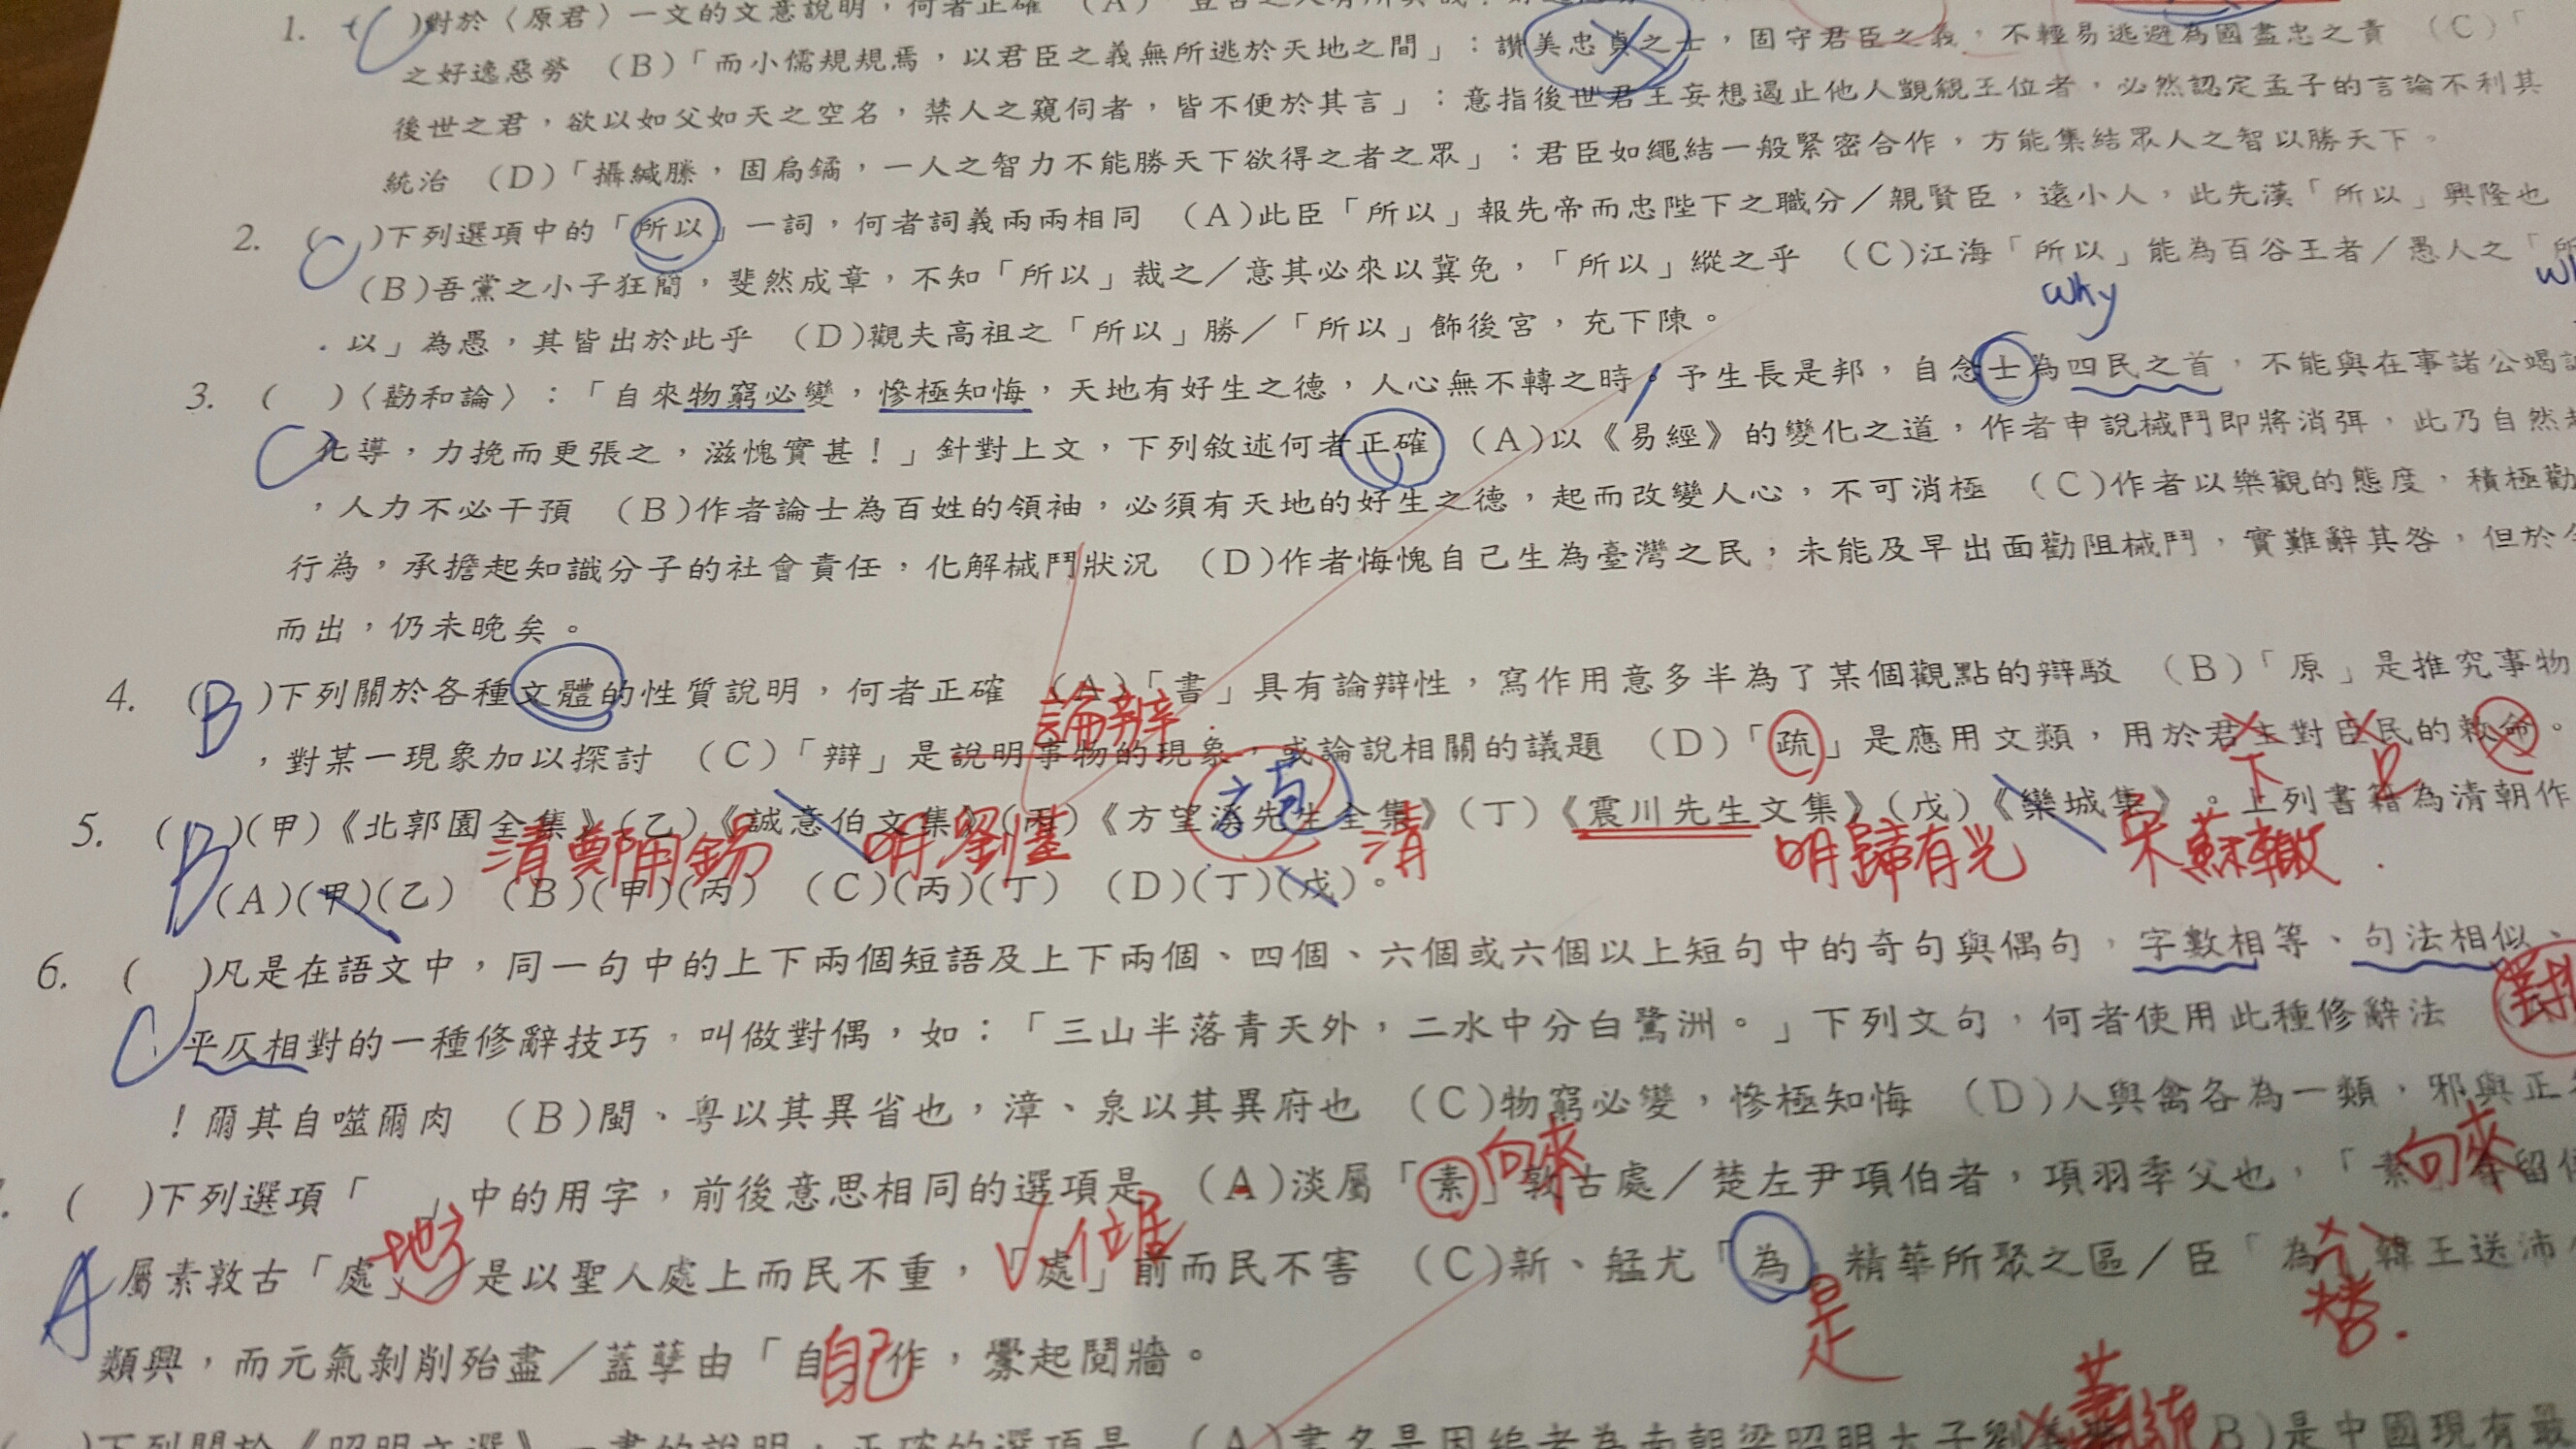 1. (C)對於〈原君〉一文的文意說明，何者正確 (A)
之好逸惡勞 (B)「而小儒規規焉，以君臣之義無所逃於天地之間」：讚美忠貞之士，固守君臣之義，不輕易逃避為國盡忠之責 (C)「
後世之君，欲以如父如天之空名，禁人之窺伺者，皆不便於其言」：意指後世君王妄想遏止他人覬覦王位者，必然認定孟子的言論不利其
統治 (D)「攝緘縢，固扃鐍，一人之智力不能勝天下欲得之者之眾」：君臣如繩結一般緊密合作，方能集結眾人之智以勝天下。
2. (C)下列選項中的「所以」一詞，何者詞義兩兩相同 (A)此臣「所以」報先帝而忠陛下之職分／親賢臣，遠小人，此先漢「所以」興隆也
(B)吾黨之小子狂簡，斐然成章，不知「所以」裁之／意其必來以冀免，「所以」縱之乎 (C)江海「所以」能為百谷王者／愚人之「所
why
以」為愚，其皆出於此乎 (D)觀夫高祖之「所以」勝／「所以」飾後宮，充下陳。
3. ( )〈勸和論〉：「自來物窮必變，慘極知悔，天地有好生之德，人心無不轉之時。予生長是邦，自念士為四民之首，不能與在事諸公竭誠
C
化導，力挽而更張之，滋愧實甚！」針對上文，下列敘述何者正確 (A)以《易經》的變化之道，作者申說械鬥即將消弭，此乃自然
，人力不必干預 (B)作者論士為百姓的領袖，必須有天地的好生之德，起而改變人心，不可消極 (C)作者以樂觀的態度，積極勸
行為，承擔起知識分子的社會責任，化解械鬥狀況 (D)作者悔愧自己生為臺灣之民，未能及早出面勸阻械鬥，實難辭其咎，但於今
而出，仍未晚矣。
4. (B)下列關於各種文體的性質說明，何者正確 (A)「書」具有論辯性，寫作用意多半為了某個觀點的辯駁 (B)「原」是推究事物
論辨
，對某一現象加以探討 (C)「辯」是說明事物的現象，或論說相關的議題 (D)「疏」是應用文類，用於君主對臣民的敕命。
下
5. (B)(甲)《北郭園全集》(乙)《誠意伯文集》(丙)《方望溪先生全集》(丁)《震川先生文集》(戊)《欒城集》。上列書籍為清朝作
清鄭用錫 明劉基 方苞 清 明歸有光 宋蘇轍
(A)(甲)(乙) (B)(甲)(丙) (C)(丙)(丁) (D)(丁)(戊)。
6. ( )凡是在語文中，同一句中的上下兩個短語及上下兩個、四個、六個或六個以上短句中的奇句與偶句，字數相等、句法相似、
C
平仄相對的一種修辭技巧，叫做對偶，如：「三山半落青天外，二水中分白鷺洲。」下列文句，何者使用此種修辭法
！爾其自噬爾肉 (B)閩、粵以其異省也，漳、泉以其異府也 (C)物窮必變，慘極知悔 (D)人與禽各為一類，邪與正
向來 向來
( )下列選項「 」中的用字，前後意思相同的選項是 (A)淡屬「素」敦古處／楚左尹項伯者，項羽季父也，「素
地方 位居
A
屬素敦古「處」／是以聖人處上而民不重，「處」前而民不害 (C)新、艋尤「為」精華所聚之區／臣「為」韓王送沛
是 替
類興，而元氣剝削殆盡／蓋孽由「自」作，釁起鬩牆。
自己
)下列關於《昭明文選》一書的說明，正確的選項是 (A)書名是因編者為南朝梁昭明太子 (B)是中國現有最
蕭統